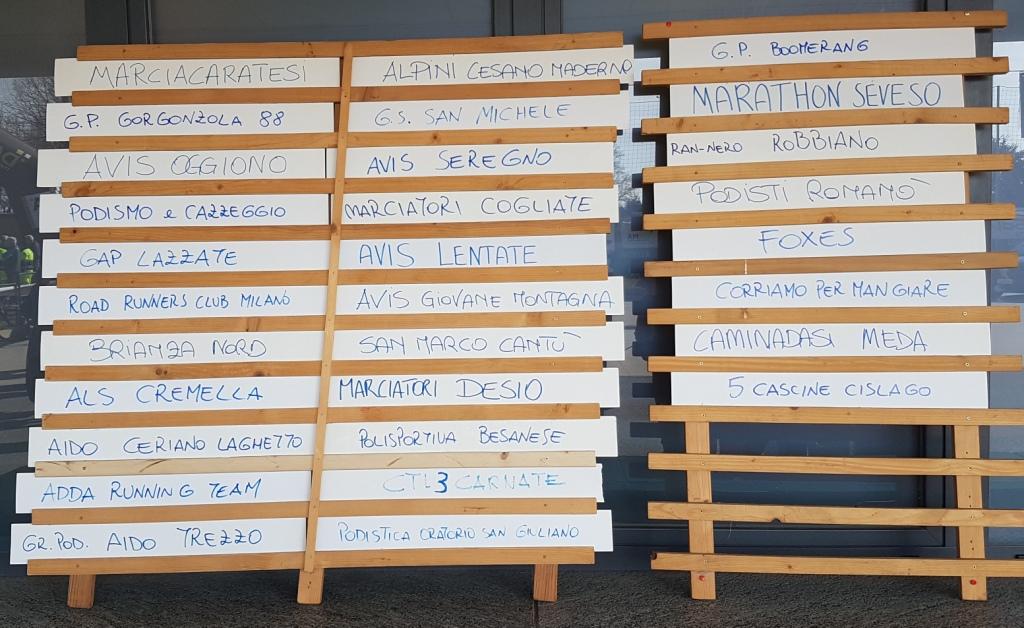 MARCIACARATESI
G.P. GORGONZOLA 88
AVIS OGGIONO
PODISMO e CAZZEGGIO
GAP LAZZATE
ROAD RUNNERS CLUB MILANO
BRIANZA NORD
ALS CREMELLA
AIDO CERIANO LAGHETTO
ADDA RUNNING TEAM
GR. POD. AIDO TREZZO
ALPINI CESANO MADERNO
G.S. SAN MICHELE
AVIS SEREGNO
MARCIATORI COGLIATE
AVIS LENTATE
AVIS GIOVANE MONTAGNA
SAN MARCO CANTU`
MARCIATORI DESIO
POLISPORTIVA BESANESE
CTL3 CARNATE
PODISTICA ORATORIO SAN GIULIANO
G.P. BOOMERANG
MARATHON SEVESO
RAN-NERO ROBBIANO
PODISTI ROMANO`
FOXES
CORRIAMO PER MANGIARE
CAMINADASI MEDA
5 CASCINE CISLAGO